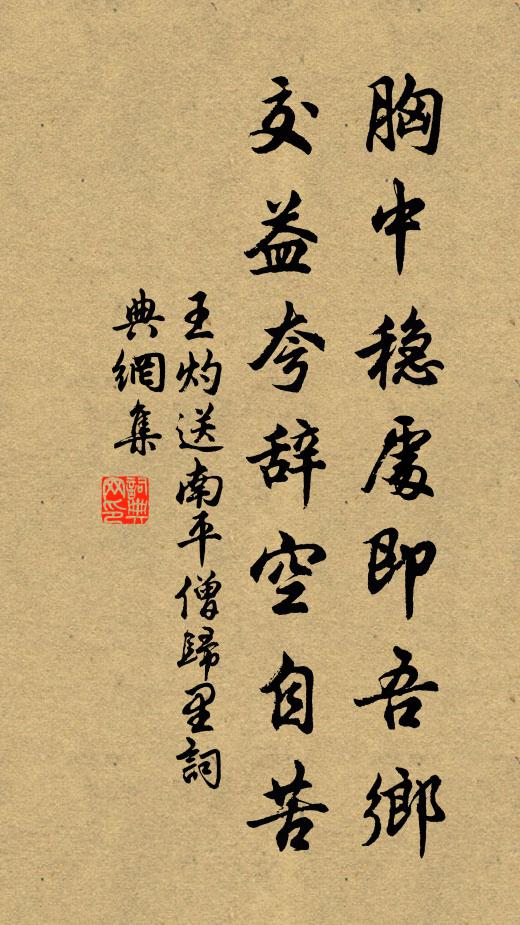 胸中稳處即吾鄉
交益夸辞空自苦
王灼送南平僧歸里詞
典網集
詞典網印